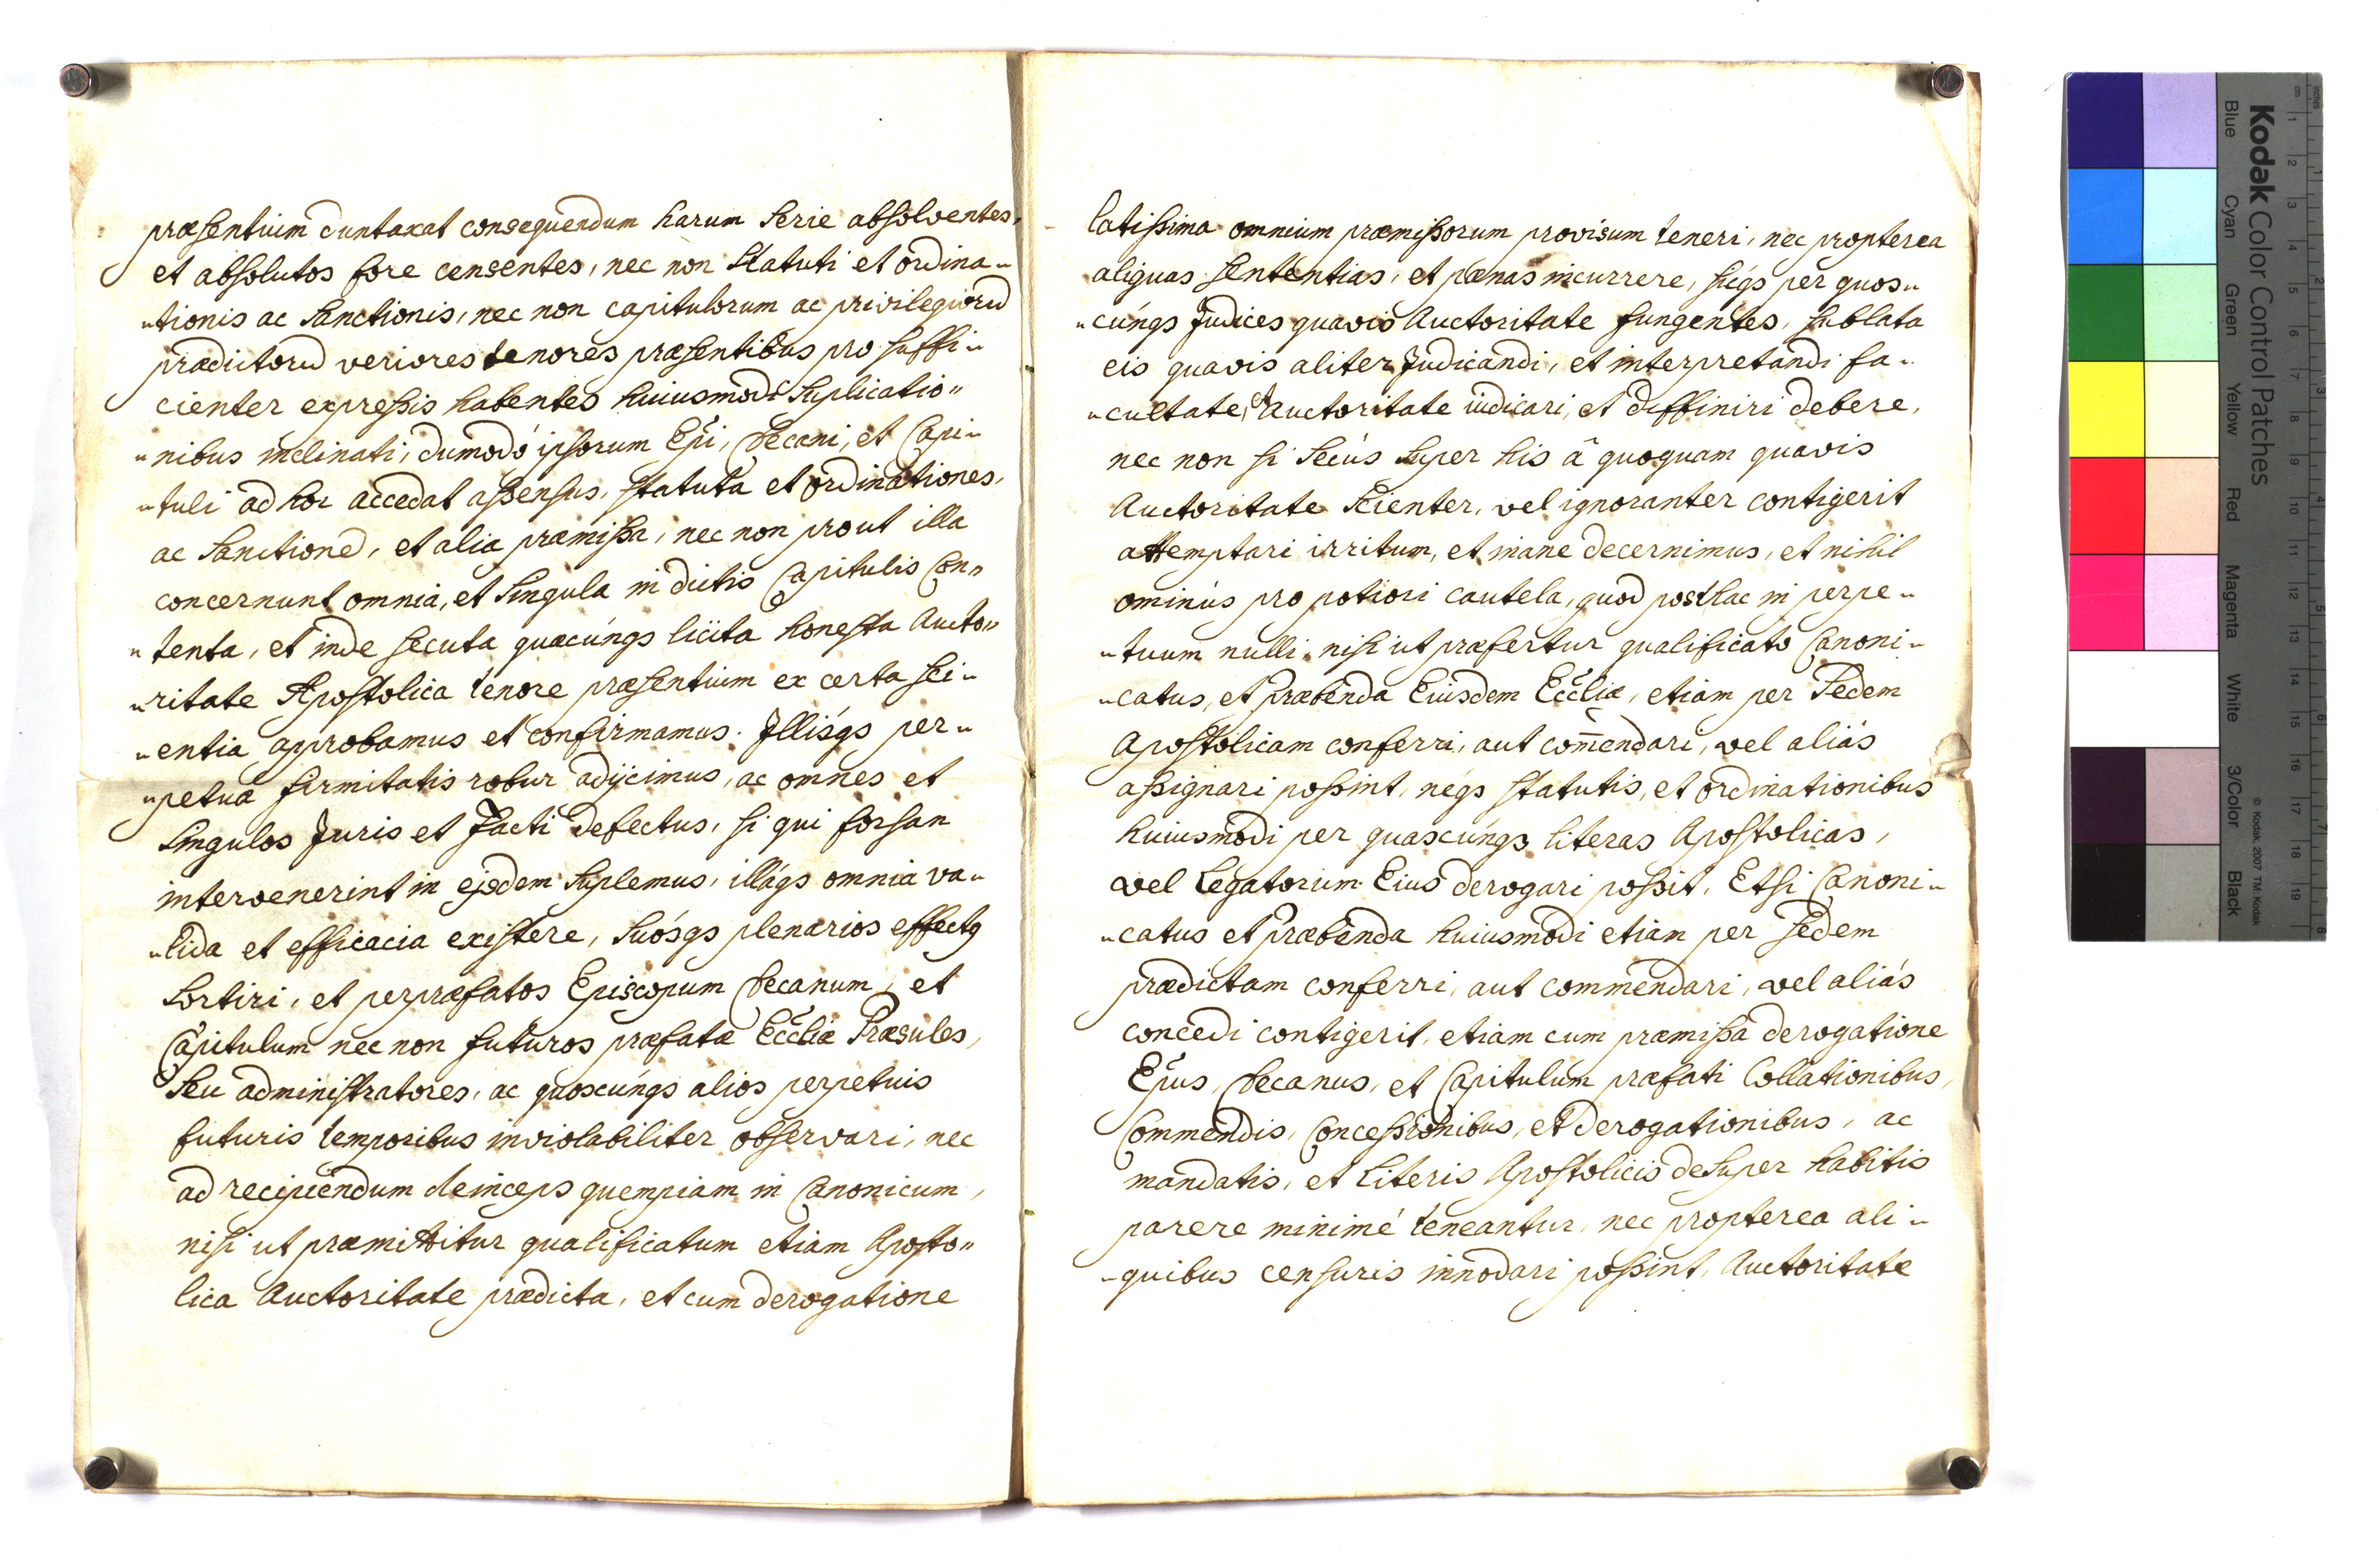 præsentium duntaxat consequendum harum serie absolventes,
et absolutos fore censentes, nec non Statuti et ordina„
„tionis ac Sanctionis, nec non capitulorum ac privilegiorũ
prædictorũ veriores tenores præsentibus pro suffi„
cienter expressis habentes huiusmodi Suplicatio„
„nibus inclinati, dumodó ipsorum Epĩ, Decani, et Capi„
„tuli ad hoc accedat assensus, statuta et ordinationes,
ac Sanctioneɔ̃, et alia præmissa, nec non prout illa
concernunt omnia, et Singula in dictis Capitulis Con„
„tenta, et inde secuta quæcúnqs licita honesta Aucto„
„ritate Apostolica tenore præsentium ex certa sci„
„entia approbamus et confirmamus. Illísqs per„
„petuæ firmitatis robur adijcimus, ac omnes et
Singulos Juris et facti defectus, si qui forsan
intervenerint in ejsdem Suplemus, illáqs omnia va„
„lida et efficacia existere, Suósqs plenarios effectꝯ
Sortiri, et per præfatos Episcopum Decanum, et
Capitulum nec non futuros præfatæ Ecc̃liæ Præsules,
Seu administratores, ac quoscúnqs alios perpetuis
futuris temporibus inviolabiliter observari, nec
ad recipiendum deinceps quempiam in Canonicum,
nisi ut præmittitur qualificatum etiam Aposto„
lica Auctoritate prædicta, et cum derogatione
latissima omnium præmissorum provisum teneri, nec propterea
aliquas sententias, et pœnas incurrere, sícqs per quos„
„cúnqs Judices quavis Auctoritate fungentes, sublata
eis quavis aliter Judicandi, et interpretandi fa„
„cultate, et Auctoritate iudicari, et diffiniri debere,
nec non si Secús Super his â quoquam quavis
Auctoritate Scienter, vel ignoranter contigerit
attemptari irritum, et inane decernimus, et nihil
ominús pro potiori cautela, quod posthac in perpe„
„tuum nulli nisi ut præfertur qualificato Canoni„
„catus, et Præbenda Eiusdem Ecc̃liæ, etiam per Sedem
Apostolicam conferri, aut com̃endari, vel aliás
assignari possint, néqs statutis, et ordinationibus
huiusmodi per quascúnqs literas Apostolicas,
vel Legatorum Eius derogari possit, Et si Canoni„
„catus et Præbenda huiusmodi etiam per Sedem
prædictam conferri, aut commendari, vel aliás
concedi contigerit, etiam cum præmissa derogatione
Ep̃us, Decanus, et Capitulum præfati Collationibus,
Commendis, Concessionibus, et derogationibus, ac
mandatis, et Literis Apostolicis deSuper habitis
parere minimé teneantur, nec propterea ali„
„quibus censuris innodari possint, Auctoritate
Kodak Color Control Patches
Blue Cyan Green Yellow Red Magenta White 3/Color Black
© Kodak, 2007 TM: Kodak
cm 1 2 3 4 5 6 7 8 9 10 11 12 13 14 15 16 17 18 19
inches 1 2 3 4 5 6 7 8